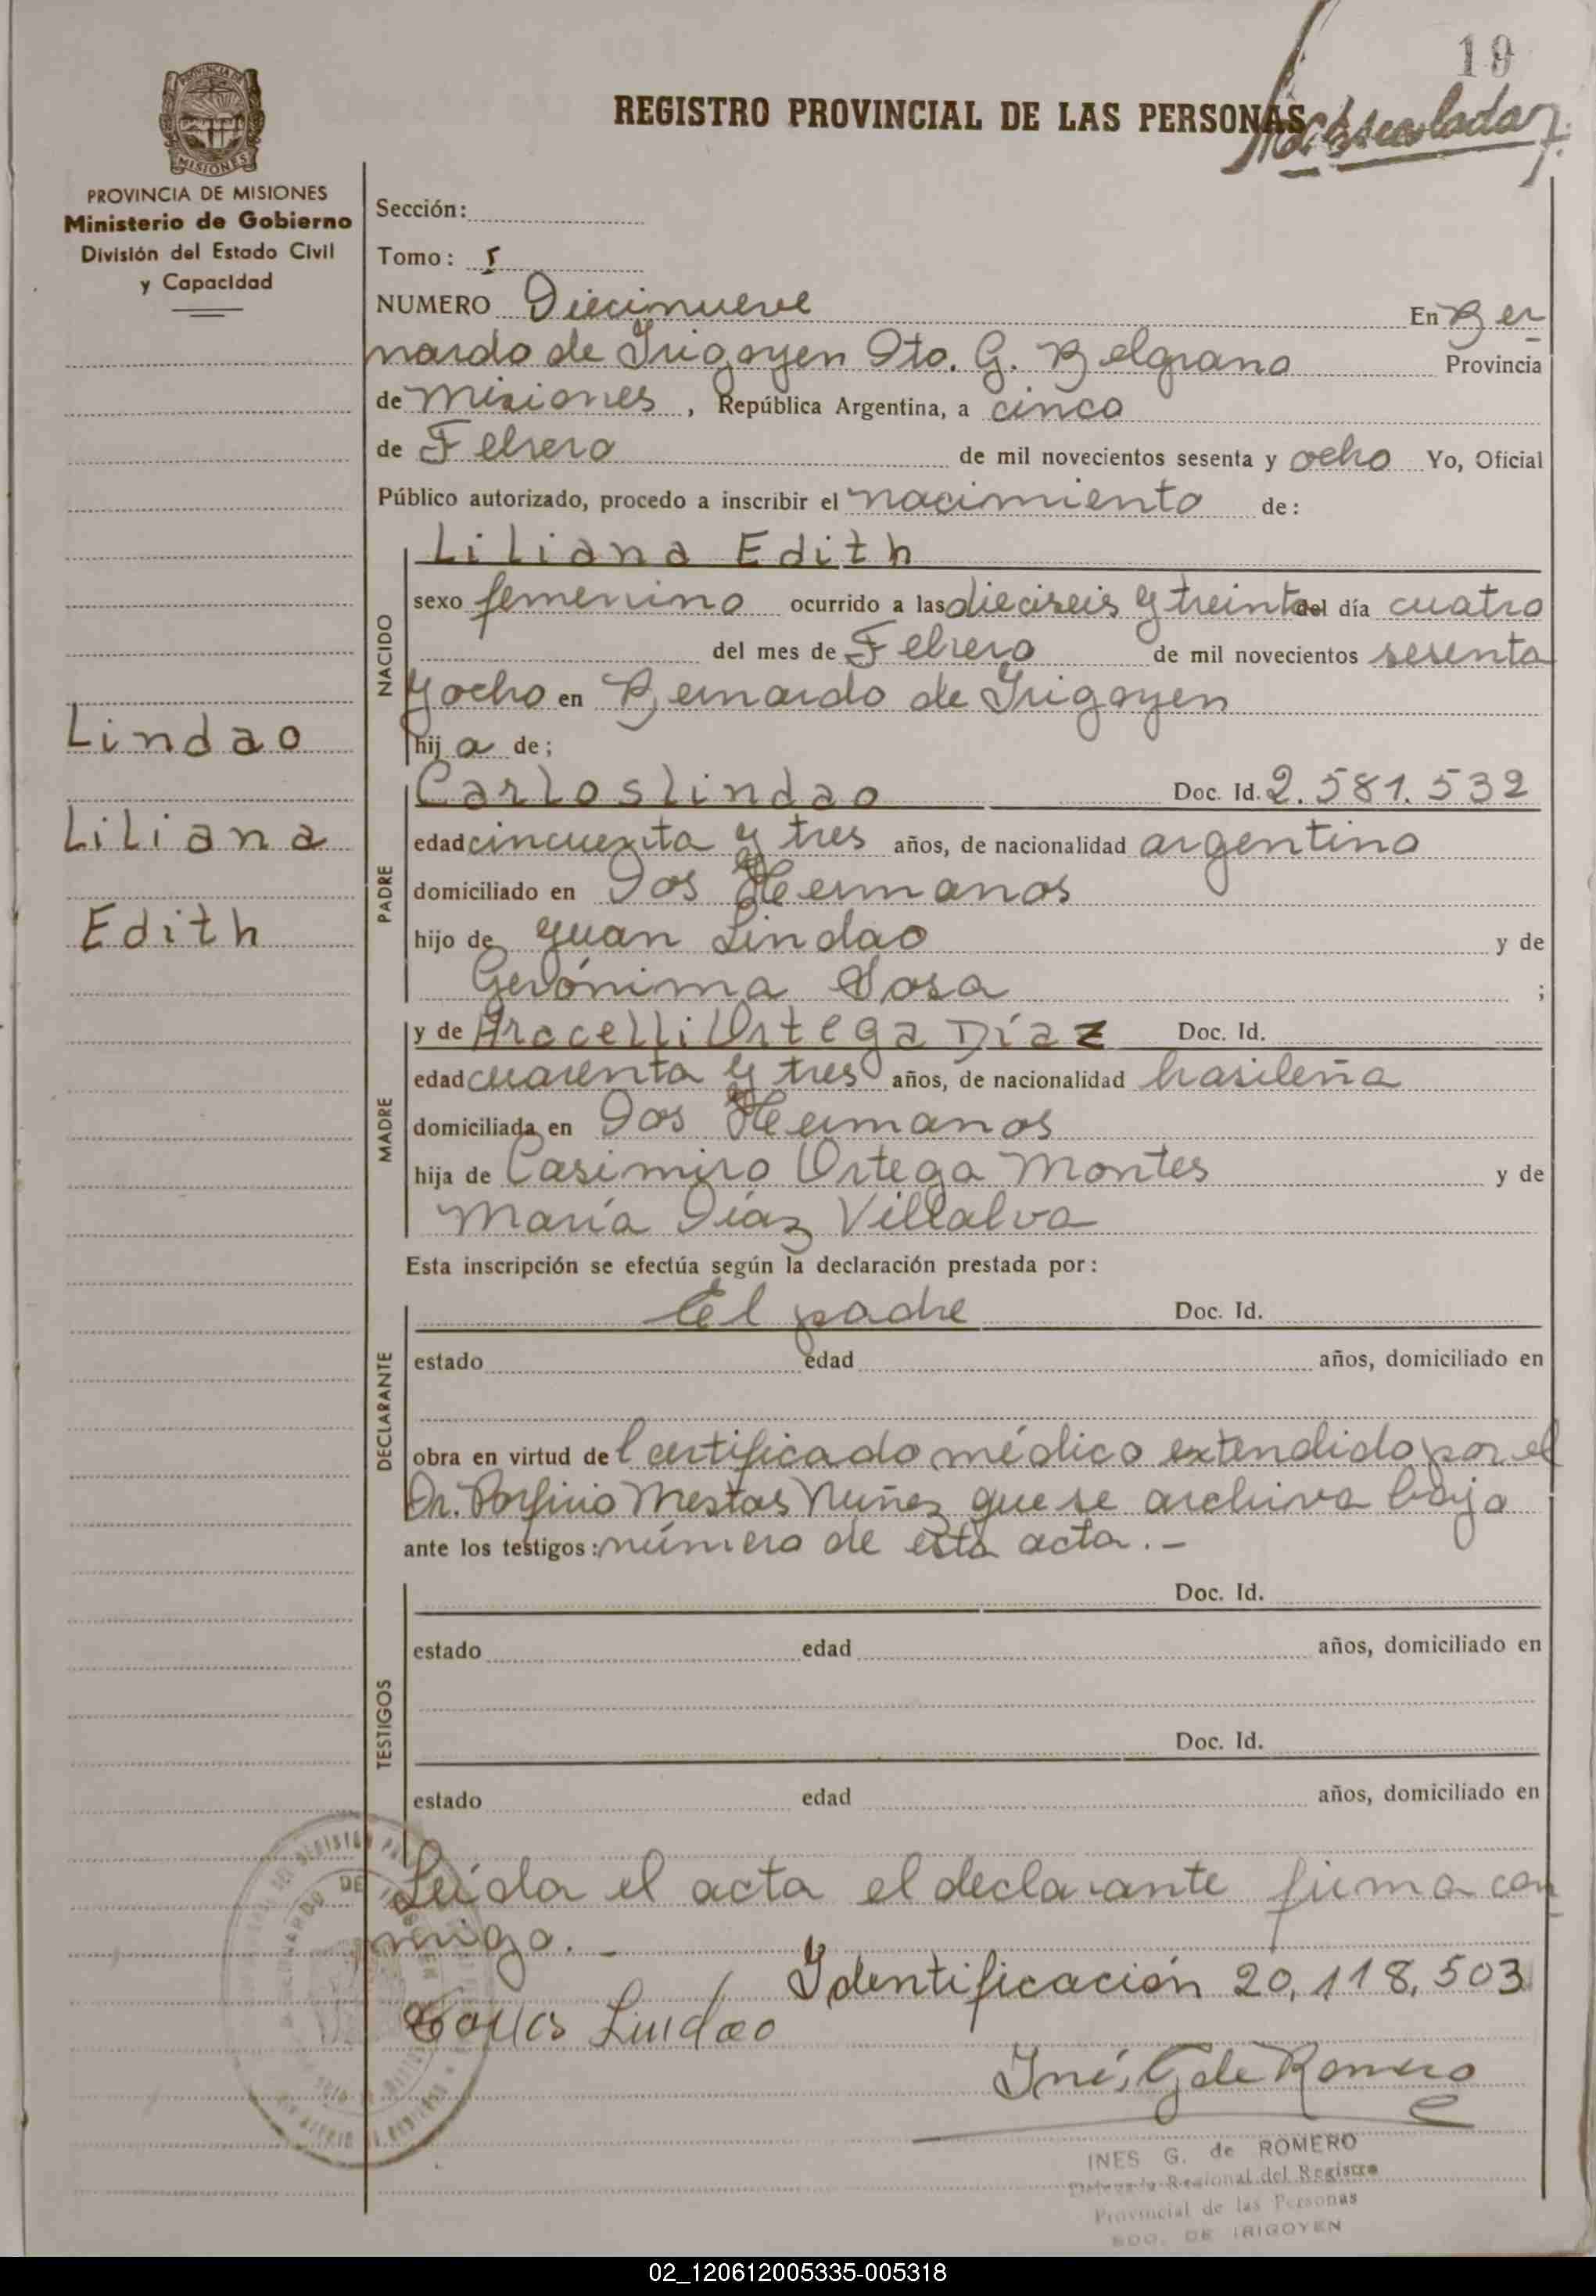 19
REGISTRO PROVINCIAL DE LAS PERSONAS
PROVINCIA DE MISIONES
Ministerio de Gobierno
División del Estado Civil
y Capacidad
Sección:
Tomo: I
NUMERO Diecinueve En Ber
nardo de Irigoyen Dto. G. Belgrano Provincia
de Misiones, República Argentina, a cinco
de Febrero de mil novecientos sesenta y ocho Yo, Oficial
Público autorizado, procedo a inscribir el nacimiento de:
Liliana Edith
NACIDO
sexo femenino ocurrido a las dieciseis y treinta del día cuatro
del mes de Febrero de mil novecientos sesenta
y ocho en Bernardo de Irigoyen
hija de;
Lindao
Liliana
Edith
PADRE
Carlos Lindao Doc. Id. 2.581.532
edad cincuenta y tres años, de nacionalidad argentino
domiciliado en Dos Hermanos
hijo de Juan Lindao y de
Gerónima Sosa ;
MADRE
y de Aracelli Ortega Díaz Doc. Id.
edad cuarenta y tres años, de nacionalidad brasileña
domiciliada en Dos Hermanos
hija de Casimiro Ortega Montes y de
María Díaz Villalva
Esta inscripción se efectúa según la declaración prestada por:
DECLARANTE
El padre Doc. Id.
estado edad años, domiciliado en
obra en virtud del certificado médico extendido por el
Dr. Porfirio Mestas Nuñez que se archiva bajo
ante los testigos: número de esta acta.-
TESTIGOS
Doc. Id.
estado edad años, domiciliado en
Doc. Id.
estado edad años, domiciliado en
Leída el acta el declarante firma con
migo.-
Identificación 20.118.503
Carlos Lindao
Inés G de Romero
INES G. de ROMERO
Delegada Regional del Registro
Provincial de las Personas
BDO. DE IRIGOYEN
02_120612005335-005318